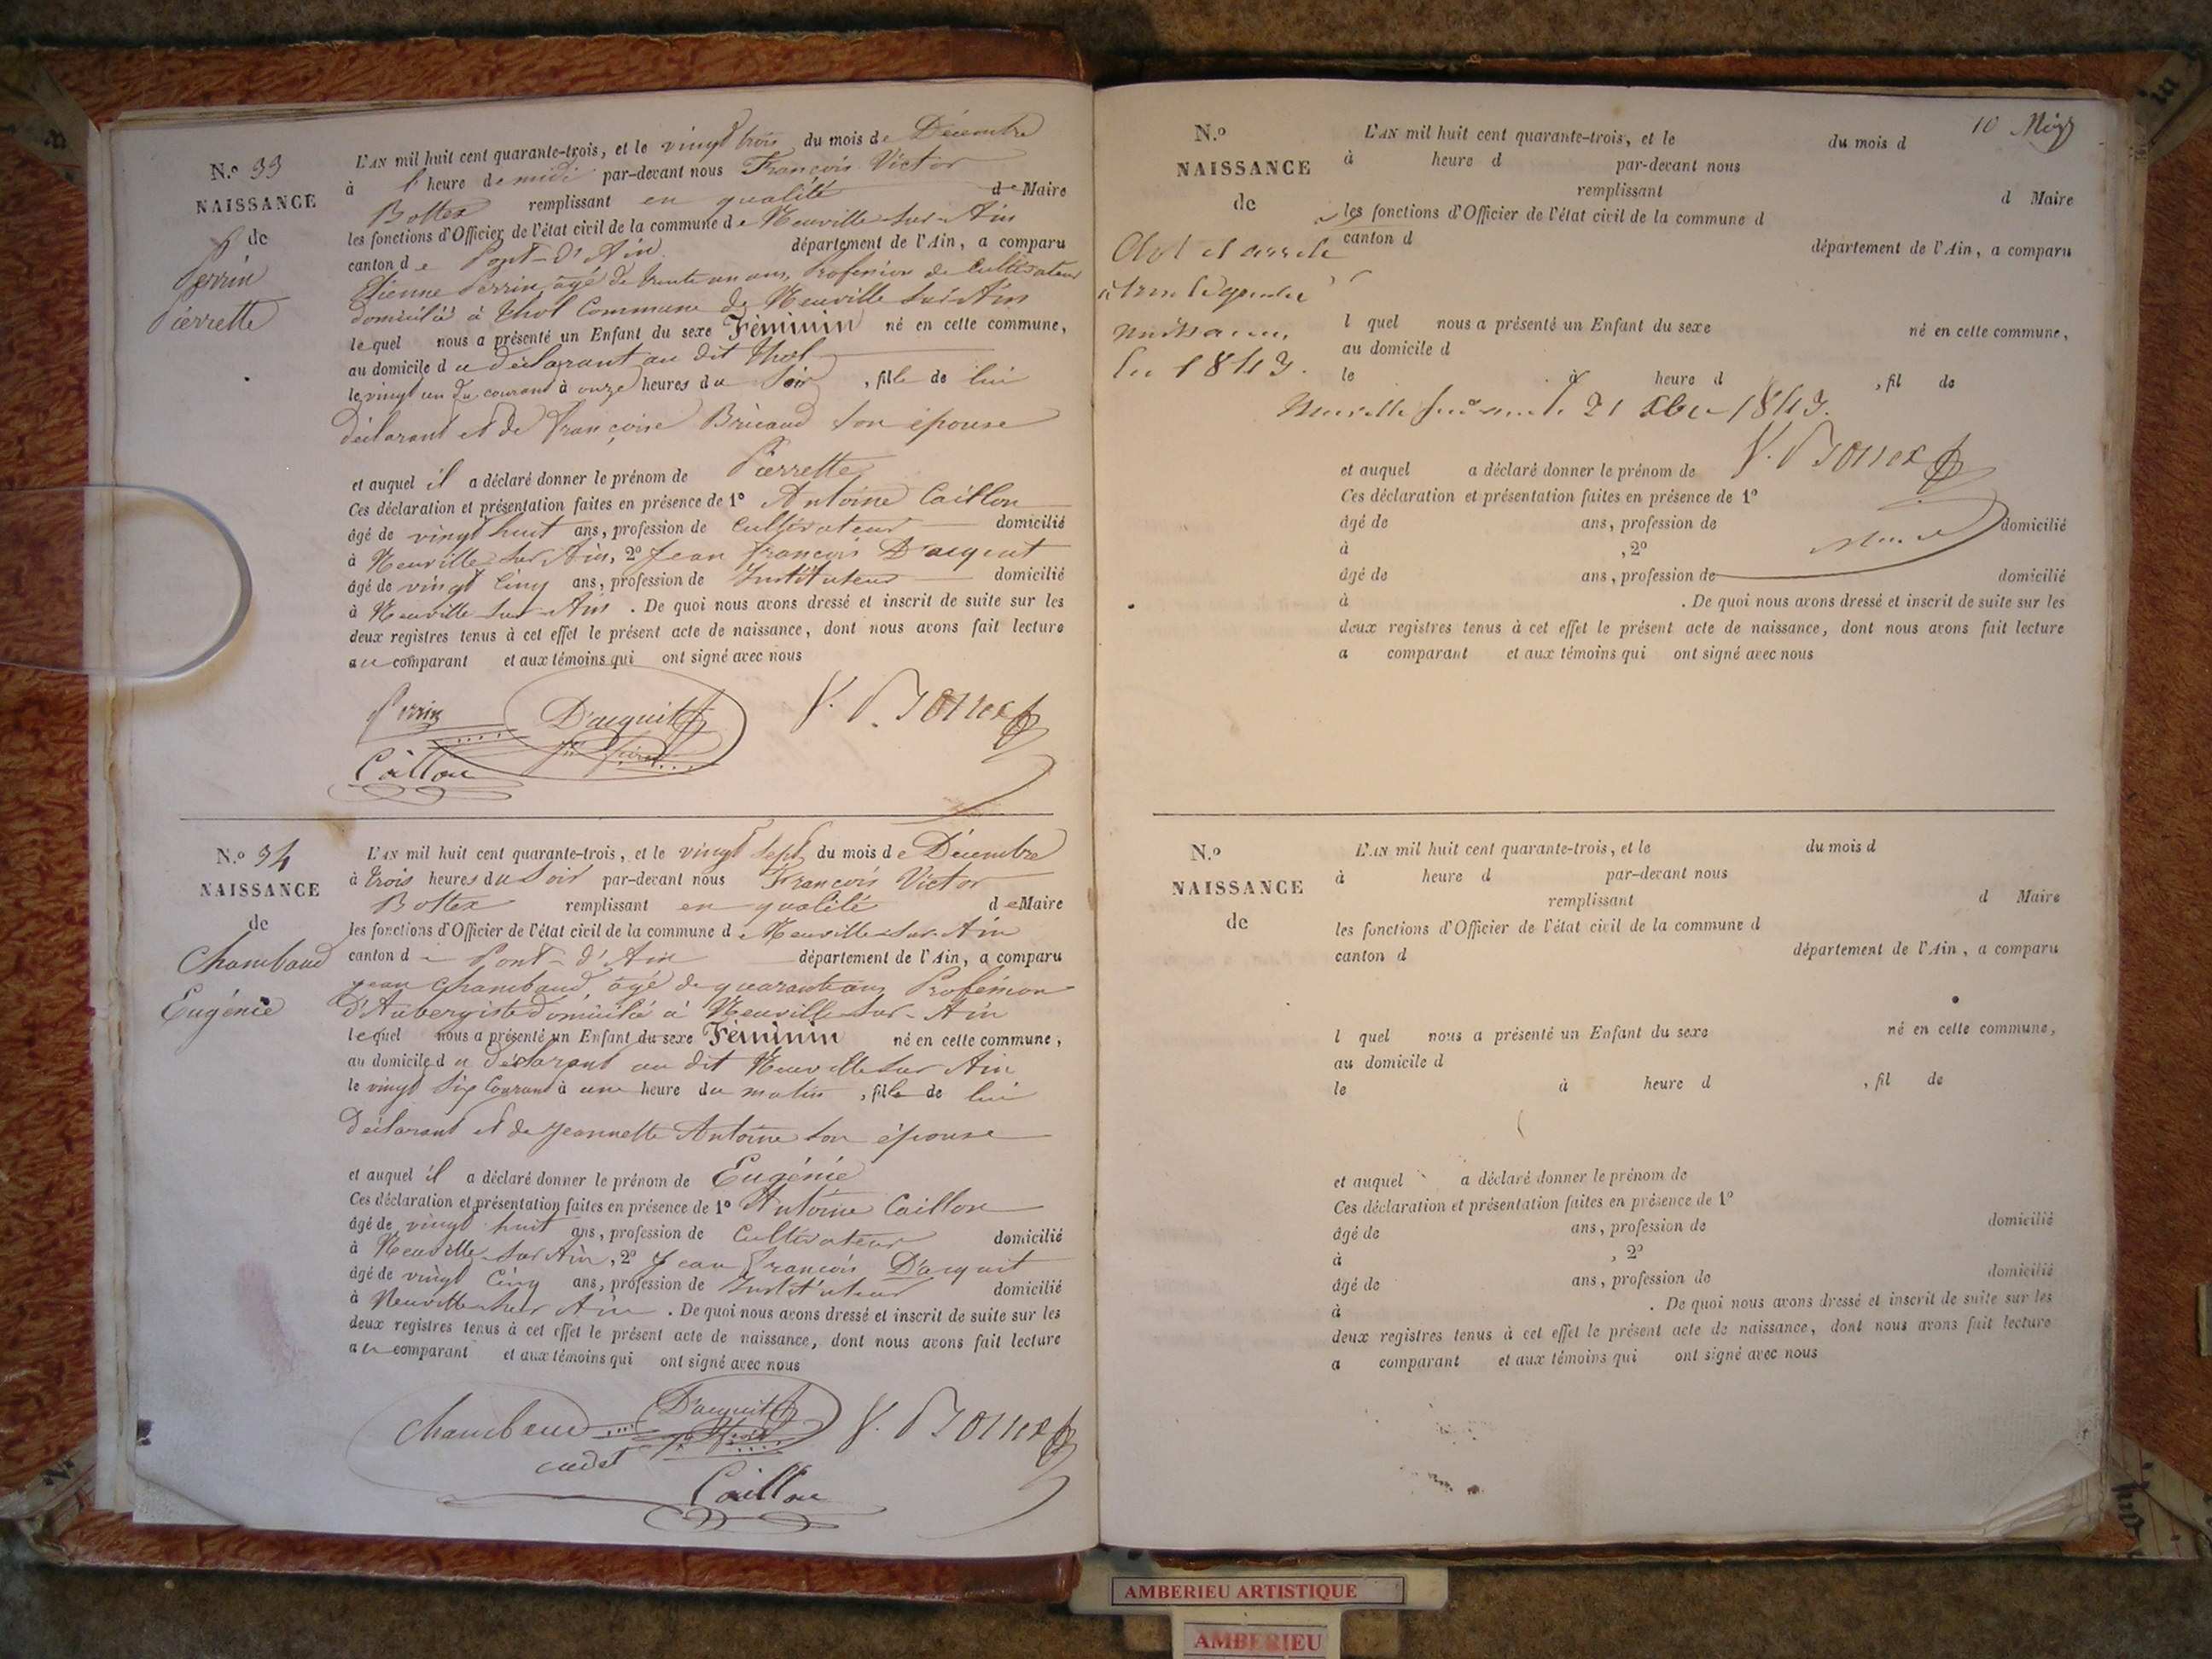 N.o 33
NAISSANCE
de
Perrin
Pierrette
L'AN mil huit cent quarante-trois, et le vingt trois du mois de Décembre
à l'heure de midi par-devant nous François Victor
Bottex remplissant en qualité de Maire
les fonctions d'Officier de l'état civil de la commune de Neuville sur Ain
canton de Pont-d'Ain département de l'Ain, a comparu
Etienne Perrin âgé de trente un ans, Profession de Cultivateur
domicilié à Thol Commune de Neuville sur Ain
lequel nous a présenté un Enfant du sexe Féminin né en cette commune,
au domicile du déclarant au dit Thol
le vingt un du courant à onze heures du Soir, fille de lui
déclarant et de Françoise son épouse
et auquel il a déclaré donner le prénom de Pierrette
Ces déclaration et présentation faites en présence de 1o Antoine Caillon
âgé de vingt huit ans, profession de Cultivateur domicilié
à Neuville sur Ain, 2o Jean François D'acquit
âgé de vingt Cinq ans, profession de Instituteur domicilié
à Neuville sur Ain. De quoi nous avons dressé et inscrit de suite sur les
deux registres tenus à cet effet le présent acte de naissance, dont nous avons fait lecture
au comparant et aux témoins qui ont signé avec nous
Perrin D'acquit V. Bottex
Caillon
N.o 34
NAISSANCE
de
Chambaud
Eugénie
L'AN mil huit cent quarante-trois, et le vingt Sept du mois de Décembre
à trois heures du Soir par-devant nous François Victor
Bottex remplissant en qualité de Maire
les fonctions d'Officier de l'état civil de la commune de Neuville sur Ain
canton de Pont-d'Ain département de l'Ain, a comparu
Jean Chambaud âgé de quarante ans Profession
D'Aubergiste domicilié à Neuville sur-Ain
lequel nous a présenté un Enfant du sexe Féminin né en cette commune,
au domicile du déclarant au dit Neuville sur Ain
le vingt Six Courant à une heure du matin, fille de lui
déclarant et de Jeannette Antoine son épouse
et auquel il a déclaré donner le prénom de Eugénie
Ces déclaration et présentation faites en présence de 1o Antoine Caillon
âgé de vingt huit ans, profession de Cultivateur domicilié
à Neuville sur Ain, 2o Jean François D'acquit
âgé de vingt Cinq ans, profession de Instituteur domicilié
à Neuville sur Ain. De quoi nous avons dressé et inscrit de suite sur les
deux registres tenus à cet effet le présent acte de naissance, dont nous avons fait lecture
au comparant et aux témoins qui ont signé avec nous
Chambaud D'acquit V. Bottex
cadet
Caillon
10
N.o
NAISSANCE
de
Clos et arrêté
à trente quatre
naissances
en 1843.
L'AN mil huit cent quarante-trois, et le du mois d
à heure d par-devant nous
remplissant d Maire
les fonctions d'Officier de l'état civil de la commune d
canton d département de l'Ain, a comparu
l quel nous a présenté un Enfant du sexe né en cette commune,
au domicile d
le à heure d , fil de
Neuville sur Ain le 31 Xbre 1843.
V. Bottex
et auquel a déclaré donner le prénom de
Ces déclaration et présentation faites en présence de 1o
âgé de ans, profession de domicilié
à , 2o
âgé de ans, profession de domicilié
à . De quoi nous avons dressé et inscrit de suite sur les
deux registres tenus à cet effet le présent acte de naissance, dont nous avons fait lecture
a comparant et aux témoins qui ont signé avec nous
N.o
NAISSANCE
de
L'AN mil huit cent quarante-trois, et le du mois d
à heure d par-devant nous
remplissant d Maire
les fonctions d'Officier de l'état civil de la commune d
canton d département de l'Ain, a comparu
l quel nous a présenté un Enfant du sexe né en cette commune,
au domicile d
le à heure d , fil de
et auquel a déclaré donner le prénom de
Ces déclaration et présentation faites en présence de 1o
âgé de ans, profession de domicilié
à , 2o
âgé de ans, profession de domicilié
à . De quoi nous avons dressé et inscrit de suite sur les
deux registres tenus à cet effet le présent acte de naissance, dont nous avons fait lecture
a comparant et aux témoins qui ont signé avec nous
AMBERIEU ARTISTIQUE
AMBERIEU